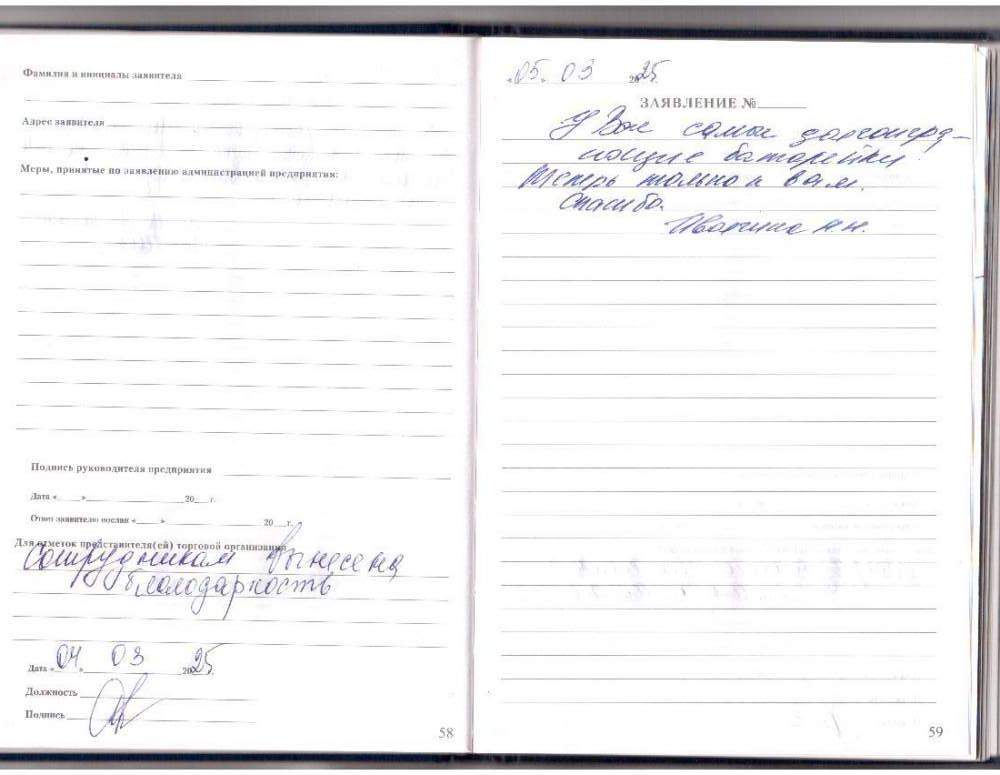 Фамилия и инициалы заявителя
Адрес заявителя
Меры, принятые по заявлению администрацией предприятия:
Подпись руководителя предприятия
Дата « » 20 г.
Ответ заявителю послан « » 20 г.
Для отметок представителя(ей) торговой организации
Сотрудникам вынесена
благодарность
Дата «04» 03 2025г.
Должность
Подпись
58
«05» 03 2025г.
ЗАЯВЛЕНИЕ №
У Вас самые долгоиграющие батарейки!
Теперь только к вам.
Спасибо.
Н.Н.
59